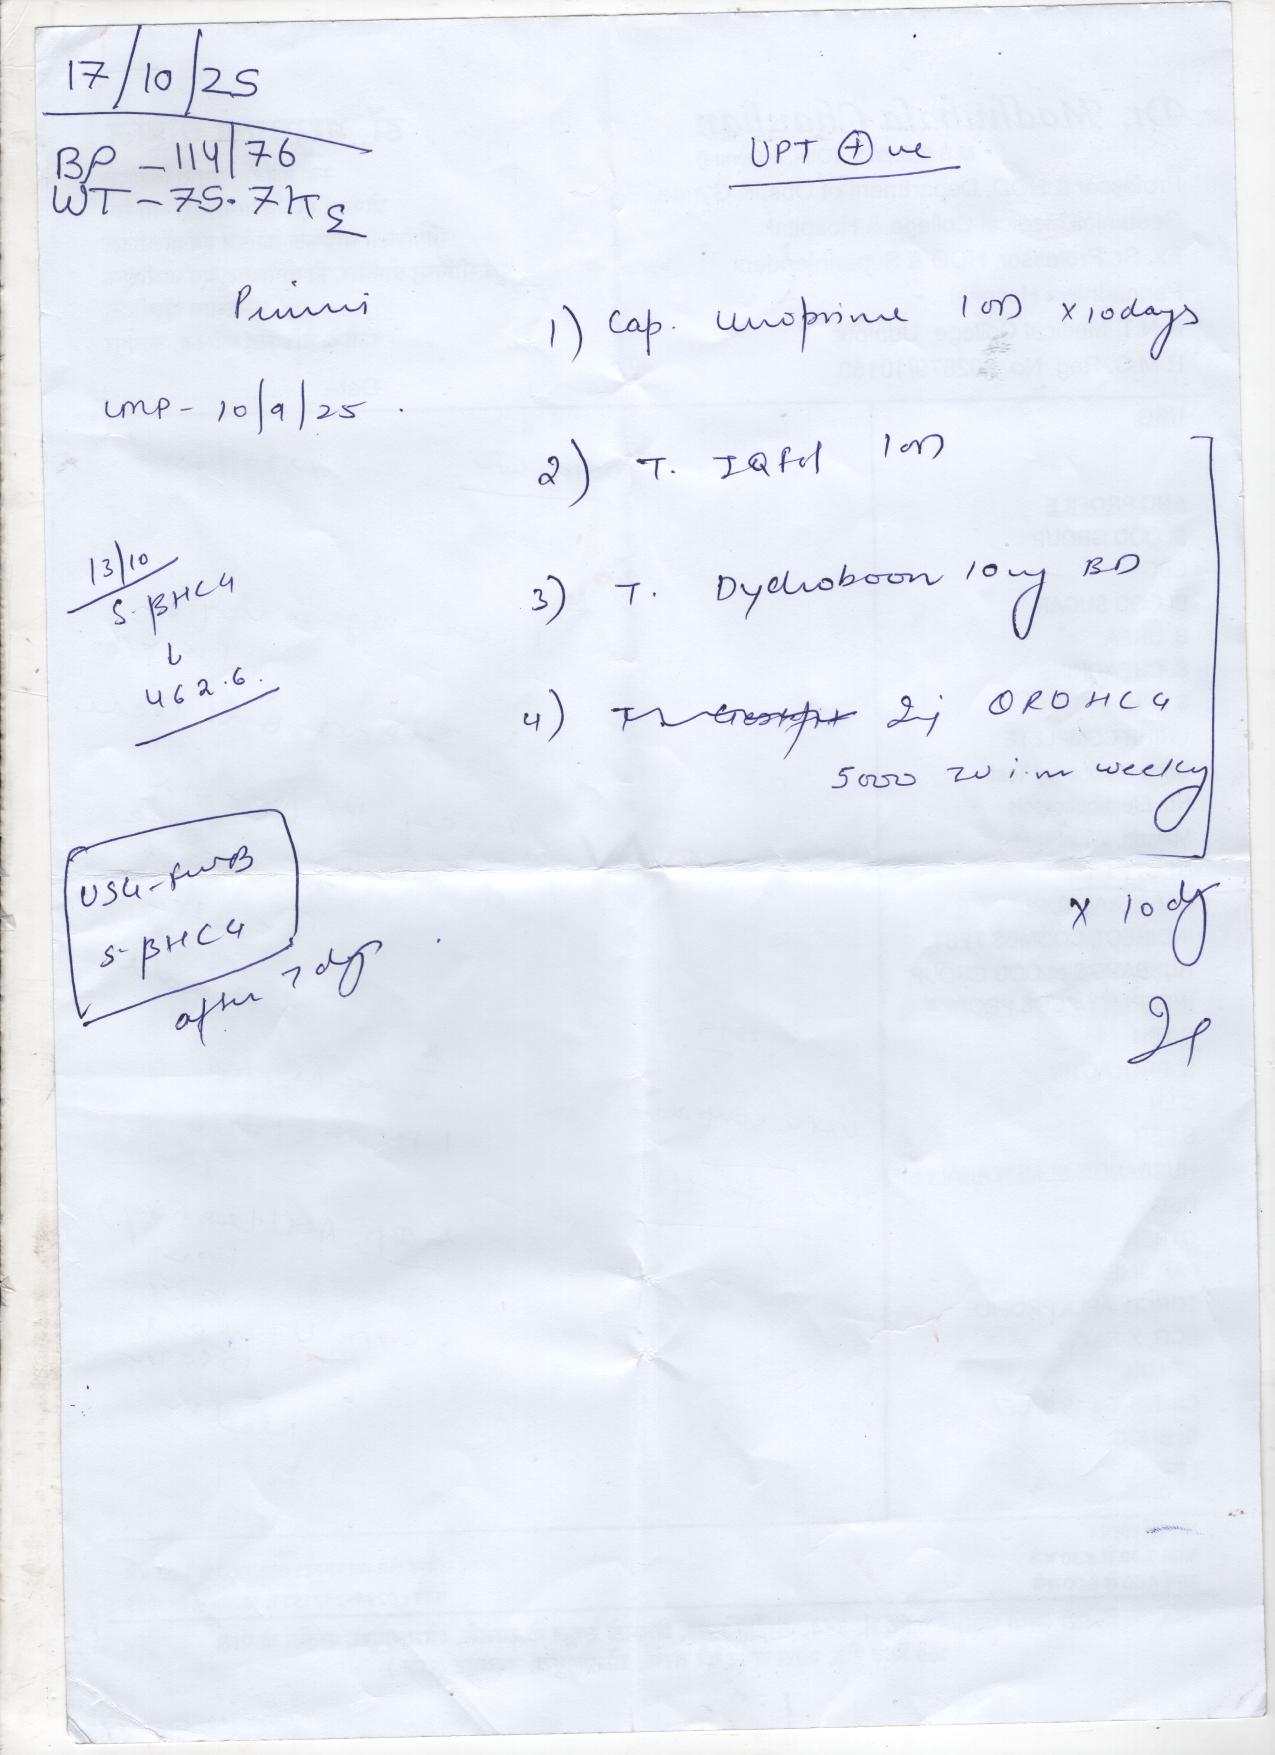 17/10/25
BP - 114/76
WT - 75.7 Kg
UPT ⊕ ve
Primi
LMP - 10/9/25.
1) Cap. Unoprime 1 OD x 10 days
2) T. IQfol 1 OD
13/10
S. βHCG
↓
462.6.
3) T. Dydroboon 10mg BD
4) Inj OROHCG
5000 IU i.m weekly
x 10 dy
USG-FWB
S-βHCG
after 7 days